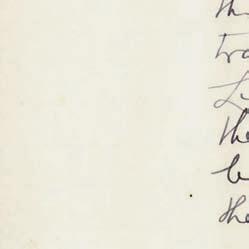 th
tra
Li
the
b
the